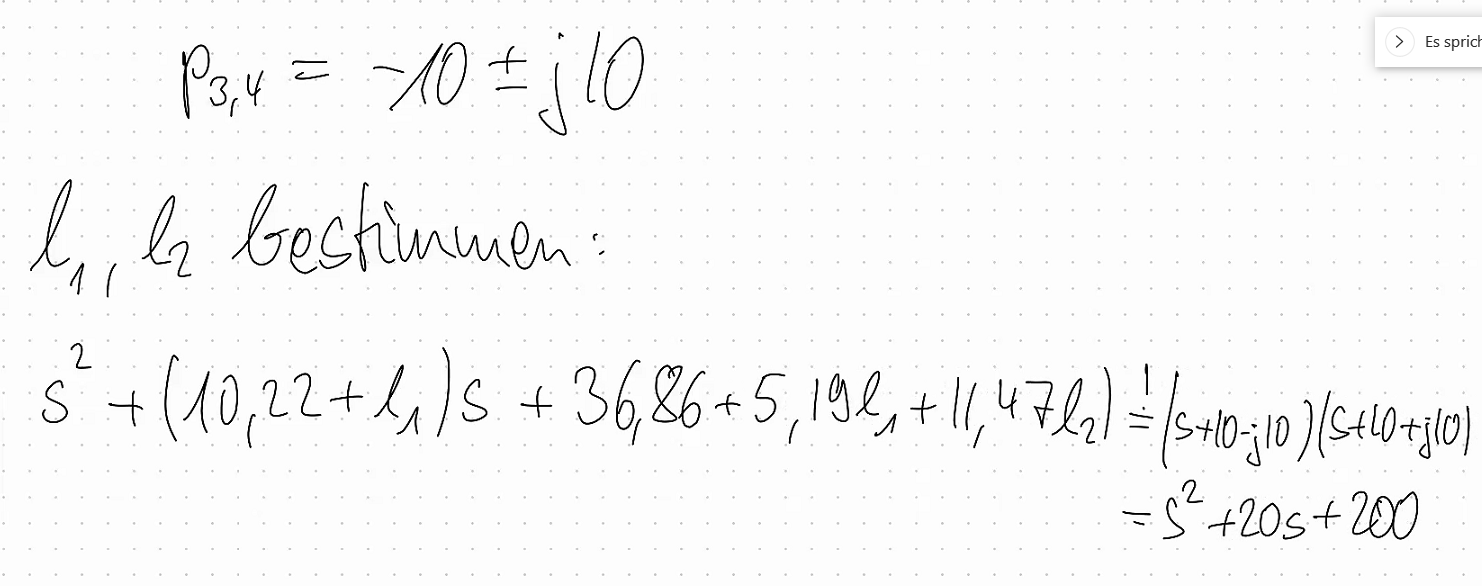 > Es sprich
p₃,₄ = -10 ± j10
l₁, l₂ bestimmen:
s² + (10,22 + l₁)s + 36,86 + 5,19l₁ + 11,47l₂) != (s+10-j10)(s+10+j10)
= s² + 20s + 200